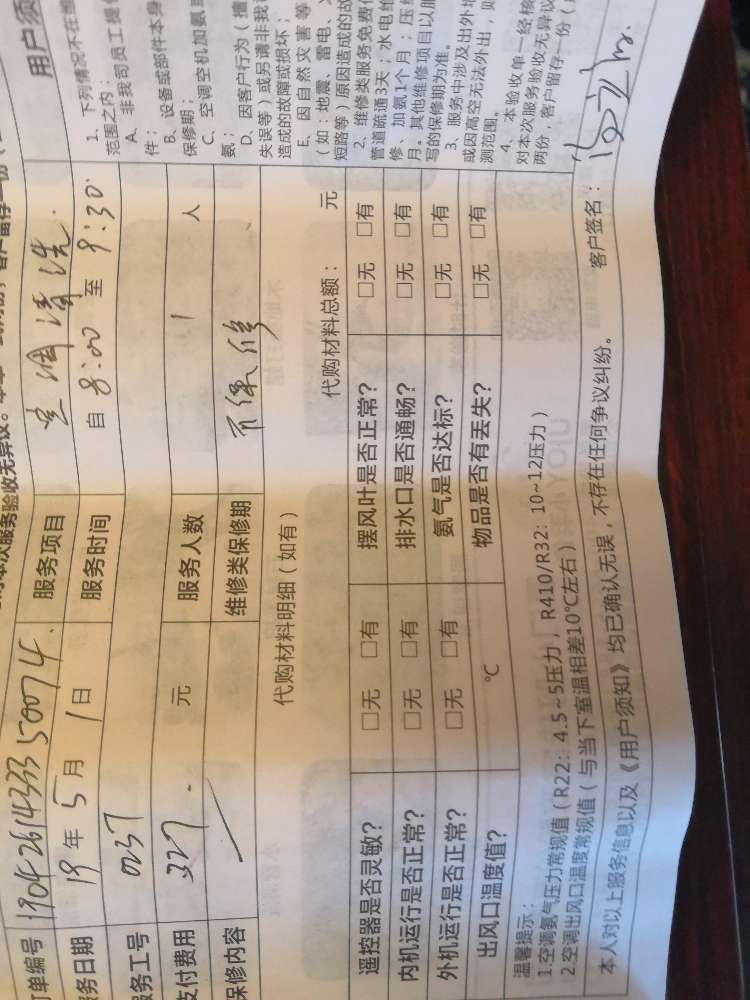 对本次服务验收无异议。
订单编号 1904261433350074 服务项目 空调清洗
服务日期 19年5月1日 服务时间 自8:00至9:30
服务工号 0237
支付费用 327. 元 服务人数 1 人
保修内容 维修类保修期 不保修
代购材料明细（如有） 代购材料总额： 元
遥控器是否灵敏？ □无 □有 摆风叶是否正常？ □无 □有
内机运行是否正常？ □无 □有 排水口是否通畅？ □无 □有
外机运行是否正常？ □无 □有 氨气是否达标？ □无 □有
出风口温度值？ ℃ 物品是否有丢失？ □无 □有
温馨提示：
1.空调氨气压力常规值（R22：4.5~5压力，R410/R32：10~12压力）
2.空调出风口温度常规值（与当下室温相差10℃左右）
本人对以上服务信息以及《用户须知》均已确认无误，不存在任何争议纠纷。 客户签名：
用户须
1、下列情况不在维
范围之内：
A、非我司员工提供
件；
B、设备或部件本身
保修期；
C、空调空机加氨或
氨；
D、因客户行为（擅
失误等）或另请非我
造成的故障或损坏；
E、因自然灾害等
（如：地震、雷电、
短路等）原因造成的故
2、维修类服务免费
管道疏通3天；水电维
修、加氨1个月；压缩
月。其他维修项目以服
写的保修期为准。
3、服务中涉及出外
或因高空无法外出，则
测范围。
4、本验收单一经核
对本次服务验收无异议
两份，客户留存一份（